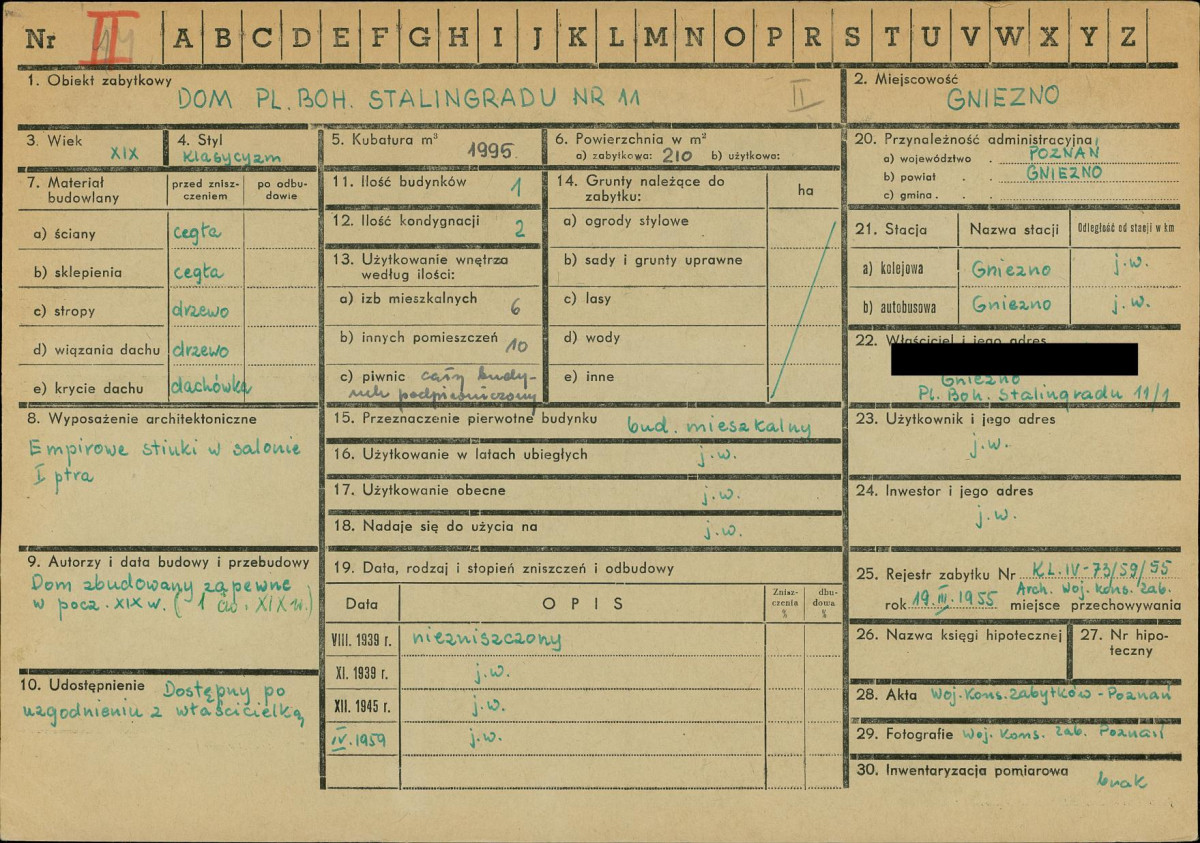 Nr II A B C D E F G H I J K L M N O P R S T U V W X Y Z
1. Obiekt zabytkowy
DOM PL. BOH. STALINGRADU NR 11 II
2. Miejscowość
GNIEZNO
3. Wiek
XIX
4. Styl
Klasycyzm
5. Kubatura m³
1995.
6. Powierzchnia w m²
a) zabytkowa: 210 b) użytkowa:
7. Materiał budowlany
przed zniszczeniem
po odbudowie
a) ściany cegła
b) sklepienia cegła
c) stropy drzewo
d) wiązania dachu drzewo
e) krycie dachu dachówka
8. Wyposażenie architektoniczne
Empirowe stiuki w salonie
I ptra
9. Autorzy i data budowy i przebudowy
Dom zbudowany zapewne
w pocz. XIX w. (1 ćw. XIX w.)
10. Udostępnienie Dostępny po
uzgodnieniu z właścicielką
11. Ilość budynków 1
12. Ilość kondygnacji 2
13. Użytkowanie wnętrza
według ilości:
a) izb mieszkalnych 6
b) innych pomieszczeń 10
c) piwnic cały budy-
nek podpiwniczony
14. Grunty należące do
zabytku:
ha
a) ogrody stylowe
b) sady i grunty uprawne
c) lasy
d) wody
e) inne
15. Przeznaczenie pierwotne budynku bud. mieszkalny
16. Użytkowanie w latach ubiegłych j.w.
17. Użytkowanie obecne j.w.
18. Nadaje się do użycia na j.w.
19. Data, rodzaj i stopień zniszczeń i odbudowy
Data OPIS
Znisz-
czenia
%
dbu-
dowa
%
VIII. 1939 r. niezniszczony
XI. 1939 r. j.w.
XII. 1945 r. j.w.
IV. 1959 j.w.
20. Przynależność administracyjna
a) województwo POZNAŃ
b) powiat GNIEZNO
c) gmina
21. Stacja Nazwa stacji Odległość od stacji w km
a) kolejowa Gniezno j.w.
b) autobusowa Gniezno j.w.
22. Właściciel i jego adres
Gniezno
Pl. Boh. Stalingradu 11/1
23. Użytkownik i jego adres
j.w.
24. Inwestor i jego adres
j.w.
25. Rejestr zabytku Nr KL.IV-73/59/55
Arch. Woj. Kons. Zab.
rok 19.III.1955 miejsce przechowywania
26. Nazwa księgi hipotecznej
27. Nr hipo-
teczny
28. Akta Woj. Kons. Zabytków - Poznań
29. Fotografie Woj. Kons. Zab. Poznań
30. Inwentaryzacja pomiarowa
brak